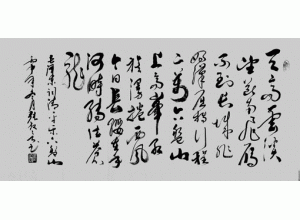 天高雲淡
望斷南飛雁
不到長城非
好漢屈指行程
二萬六盤山
上高峰紅
旗漫捲西風
今日長纓在手
何時縛住蒼
龍
毛澤東詞清平樂六盤山